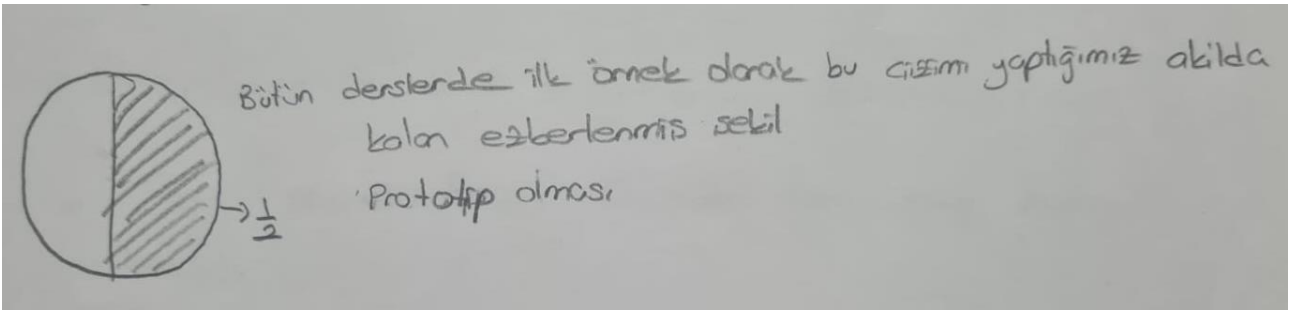 Bütün derslerde ilk örnek olarak bu çizimi yaptığımız akılda
kalan ezberlenmiş şekil
Prototip olması
→ 1/2